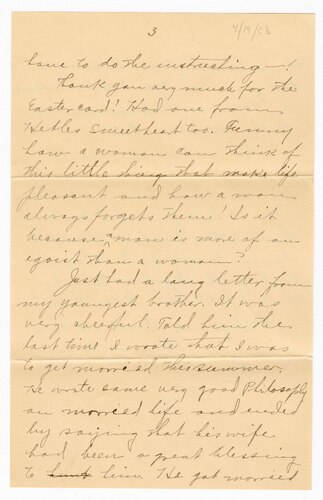 3
4/19/03
have to do the instructing—!
Thank you very much for the
Easter card! Had one from
sweetheart too. Funny
how a woman can think of
this little thing that make life
pleasant and how a man
always forgets them! Is it
because a man is more of an
egoist than a woman?
Just had a long letter from
my youngest brother. It was
very cheerful. Told him the
last time I wrote that I was
to get married this summer
He wrote some very good Philosophy
on married life and ended
by saying that his wife
had been a great blessing
to him. He got married